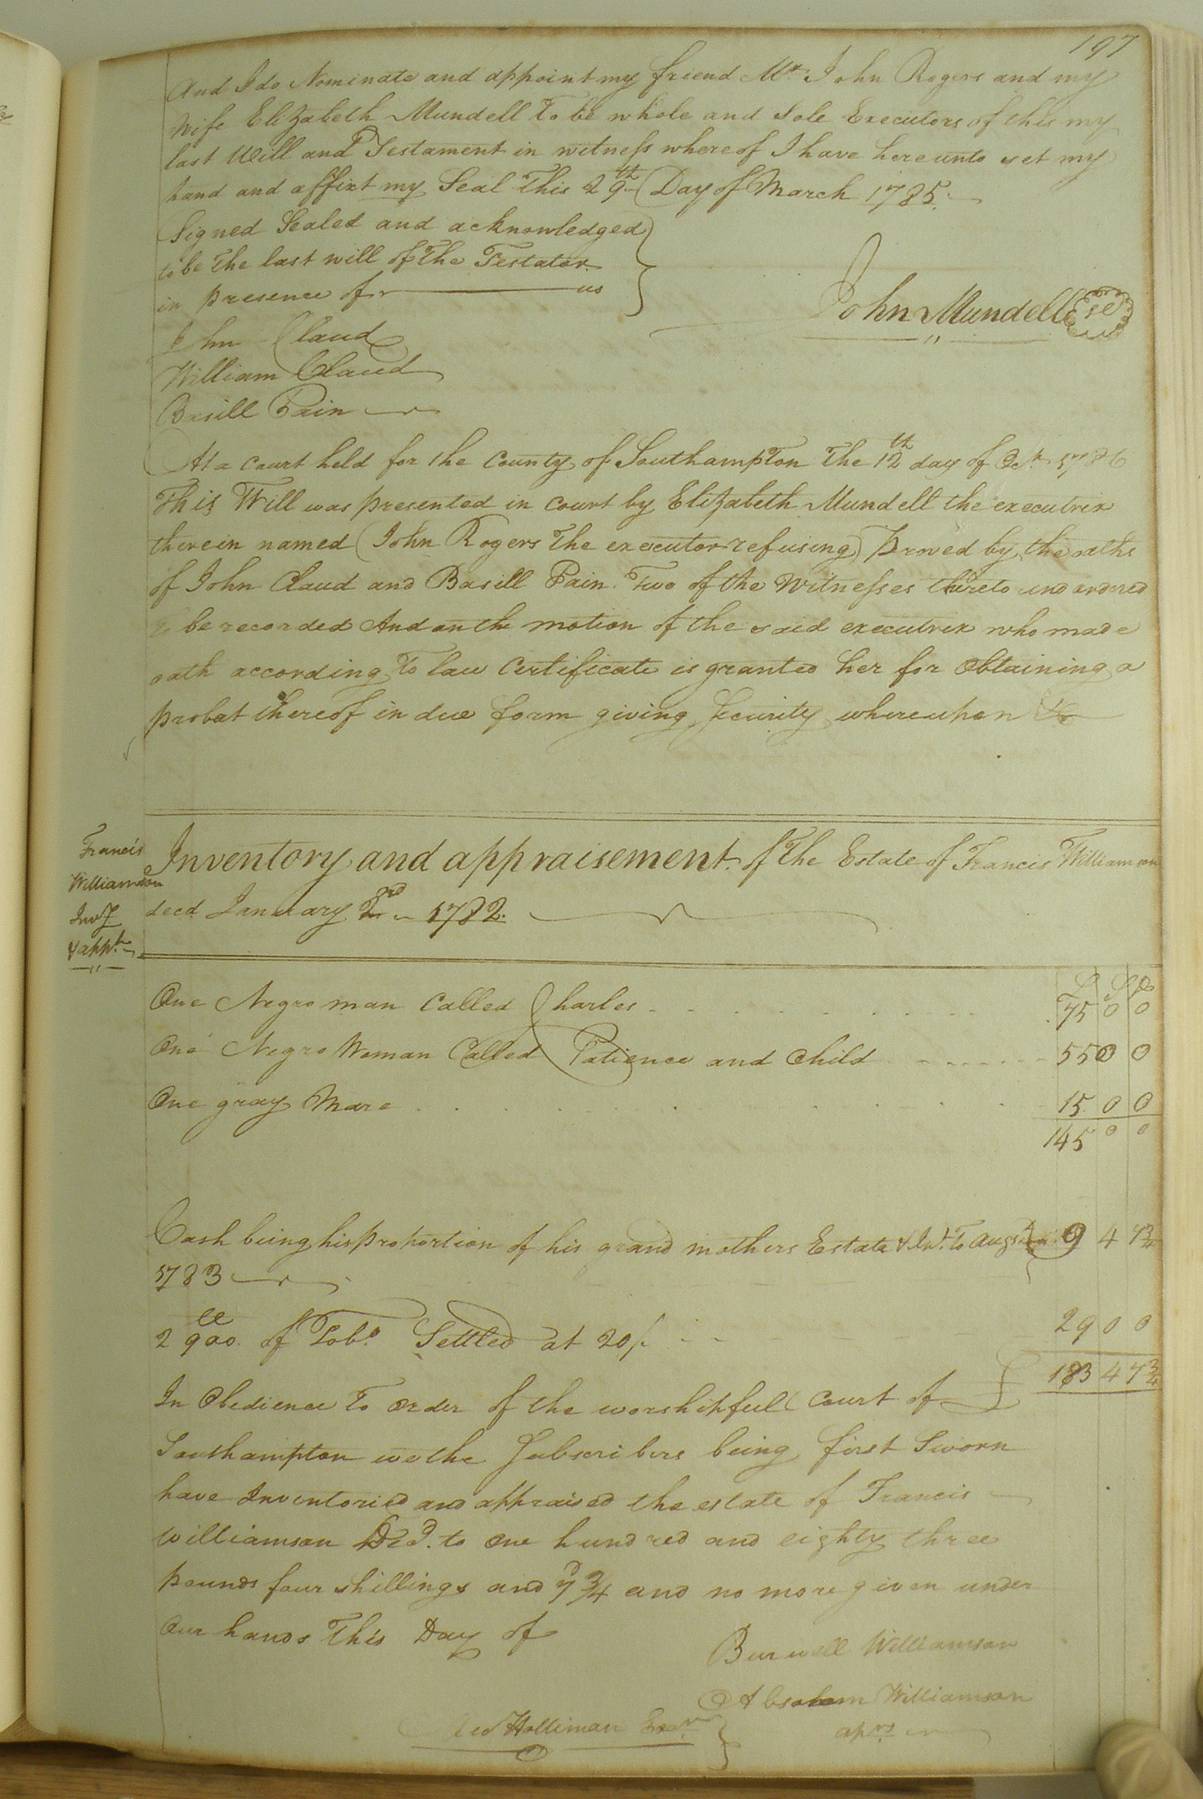 197
And I do Nominate and appoint my friend Mr. John Rogers and my
Wife Elizabeth Mundell To be whole and Sole Executors of this my
last Will and Testament in witness whereof I have hereunto set my
hand and affixt my Seal This 29th Day of March 1785.
Signed Sealed and acknowledged
to be the last will of the Testator
in presence of us
John Mundell Seal
John Claud
William Claud
Basill Pain
At a court held for the County of Southampton The 12th day of Oct. 1786
This Will was presented in court by Elizabeth Mundell the executrix
therein named (John Rogers The executor refusing) Proved by the oaths
of John Claud and Basill Pain Two of the Witnesses thereto and ordered
to be recorded And on the motion of the said executrix who made
oath according To law Certificate is granted her for Obtaining a
probat thereof in due form giving Security whereupon &c
Francis
Williamson
Invy
& appt.
Inventory and appraisement of The Estate of Francis Williamson
decd January 2nd 1782.
L S D
One Negro man Called Charles 75 0 0
One Negro Woman Called Patience and Child 55 0 0
One gray Mare 15 0 0
145 0 0
Cash being his proportion of his grand mothers Estate & Int. To Augst 9 4 7¾
1783
2900 of Tobo. Settled at 20/ 29 0 0
183 4 7¾
In Obedience To Order of the worshipfull Court of
Southampton we the Subscribers being first Sworn
have Inventoried and appraised the estate of Francis
Williamson Decd. to One hundred and eighty three
pounds four shillings and 7d¾ and no more given under
Our hands This Day of
Burwell Williamson
Absolom Williamson
aprs
Holliman Exr